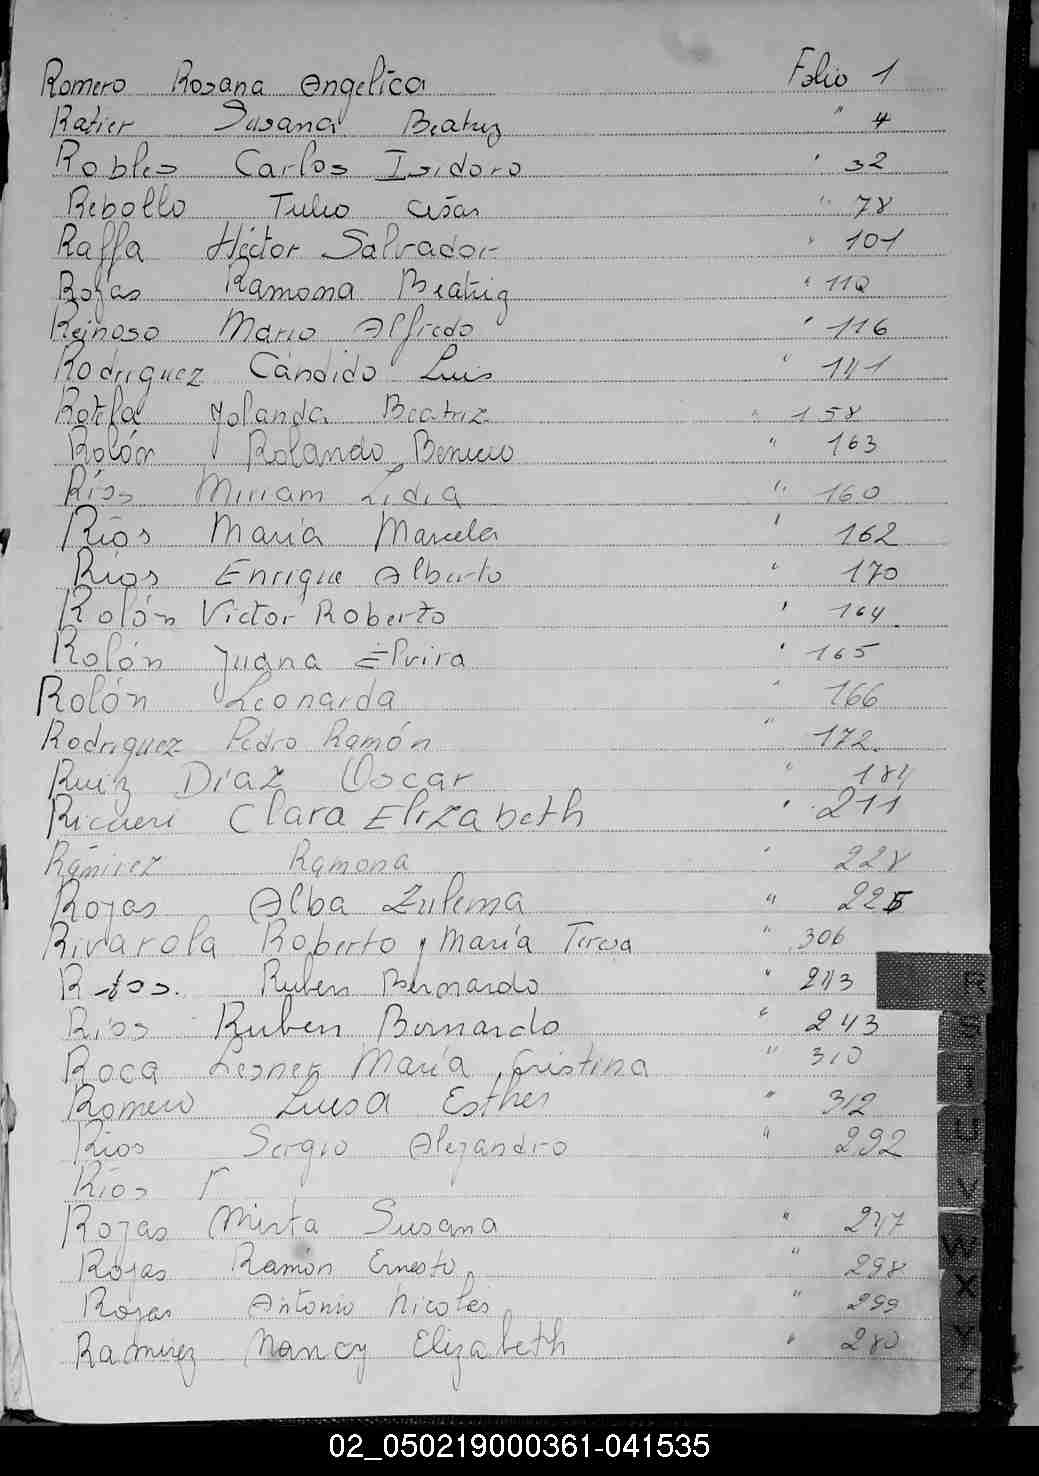 Romero Rosana Angelica Folio 1
Ratier Susana Beatriz " 4
Robles Carlos Isidoro " 32
Rebollo Tulio " 78
Raffa Héctor Salvador " 101
Rojas Ramona Beatriz " 112
Reinoso Mario Alfredo " 116
Rodriguez Cándido Luis " 141
Rotela Yolanda Beatriz " 158
Rolón Rolando Benicio " 163
Ríos Miriam Lidia " 160
Ríos María Marcela " 162
Ríos Enrique Alberto " 170
Rolón Victor Roberto " 164
Rolón Juana Elvira " 165
Rolón Leonarda " 166
Rodriguez Pedro Ramón " 172
Ruiz Díaz Oscar " 184
Ricueri Clara Elizabeth " 211
Ramirez Ramona " 228
Rojas Alba Zulema " 225
Rivarola Roberto y María Teresa " 306
Ríos. Ruben Bernardo " 243
Ríos Ruben Bernardo " 243
Roca Lesner María Cristina " 310
Romero Luisa Esther " 312
Ríos Sergio Alejandro " 292
Ríos
Rojas Mirta Susana " 247
Rojas Ramón Ernesto " 298
Rojas Antonio Nicolás " 299
Ramirez Nancy Elizabeth " 280
R
S
T
U
V
W
X
Y
Z
02_050219000361-041535